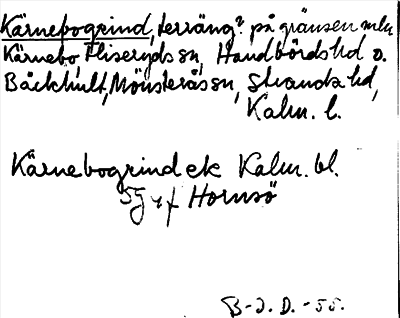 Kärnebogrind, terräng? på gränsen mln
Kärnebo, Fliseryds sn, Handbörds hd o.
Bäckhult, Mönsterås sn, Stranda hd,
Kalm. l.
Kärnebogrind ek Kalm. bl.
5G Hornsö
B-J.D.-55.